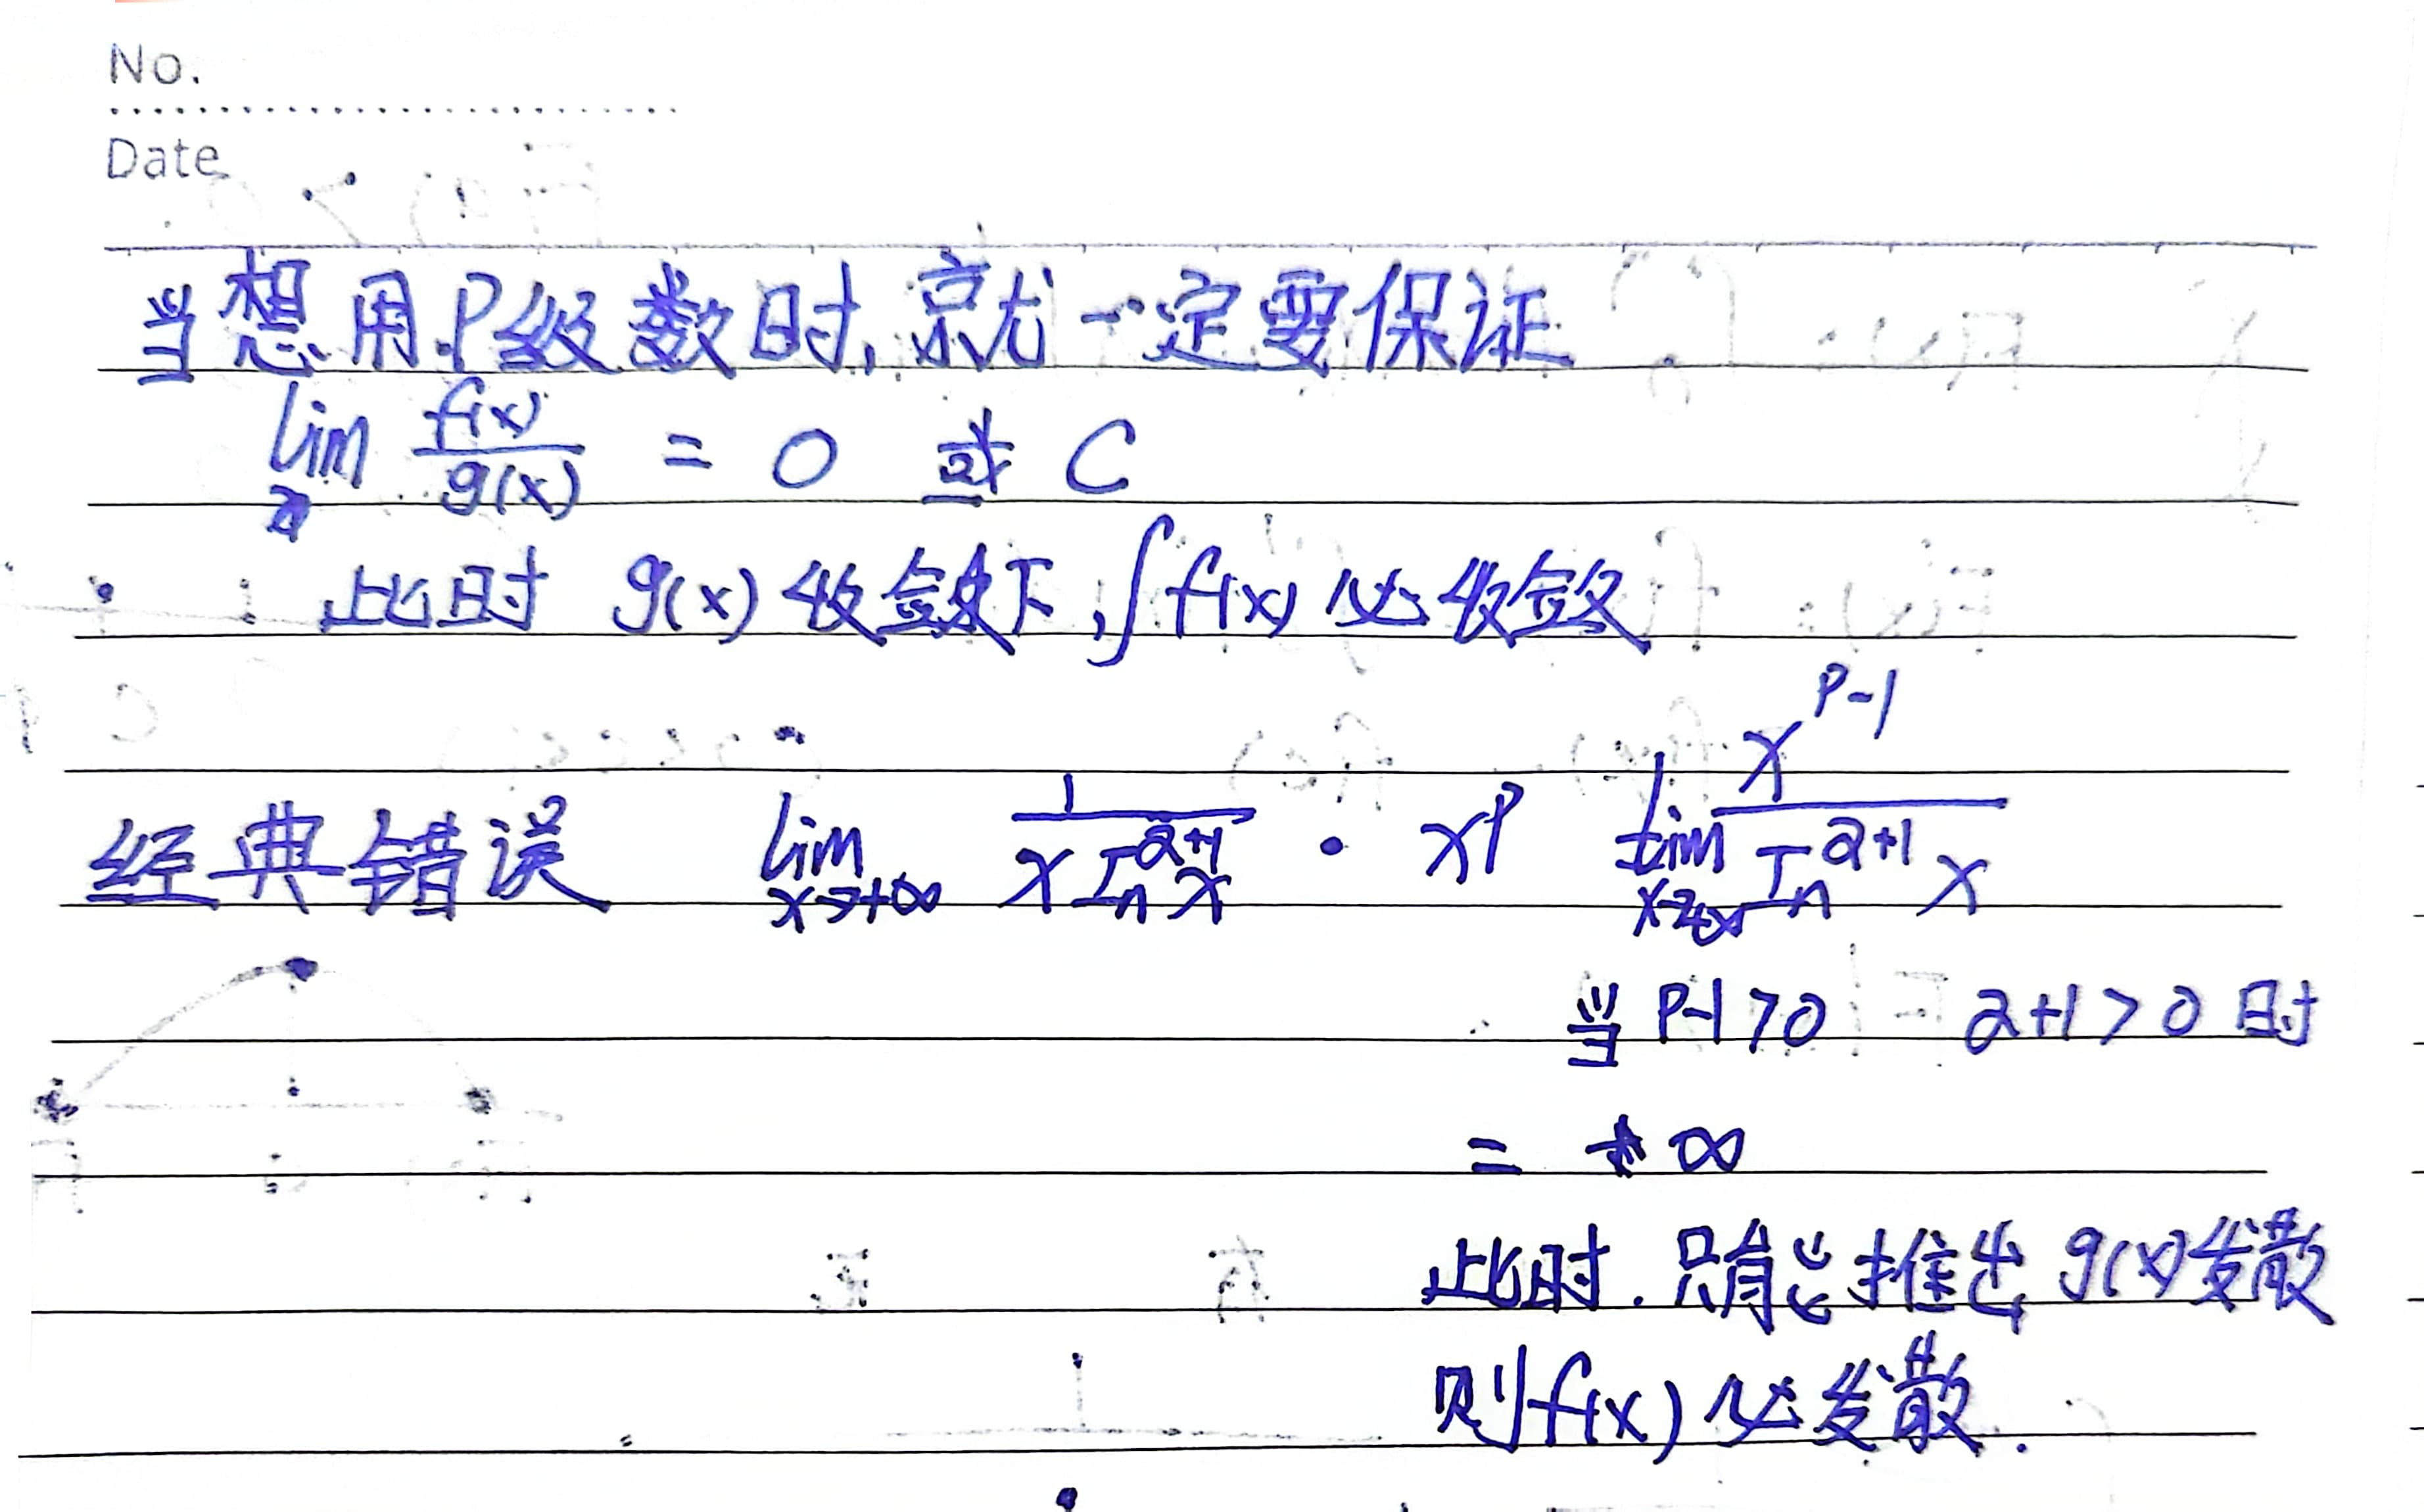 No.
Date
当想用P级数时,就一定要保证
lim f(x)/g(x) = 0 或 C
此时 g(x)收敛下,∫f(x)必收敛
经典错误 lim x→+∞ 1/(x ln^(α+1) x) · x^P lim x→+∞ x^(P-1)/(ln^(α+1) x)
当 P-1>0 α+1>0时
= +∞
此时.只能推出g(x)发散
则f(x)必发散.